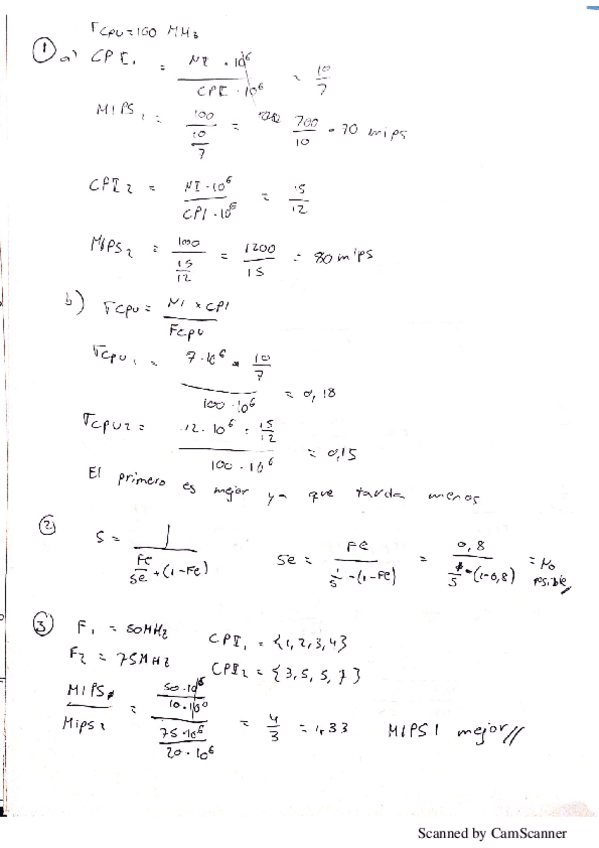 Fcpu = 100 MHz
① a) CPI₁ = NI · 10⁶ / CPI · 10⁶ = 10 / 7
MIPS₁ = 100 / (10 / 7) = 700 / 10 = 70 mips
CPI₂ = NI · 10⁶ / CPI · 10⁶ = 15 / 12
MIPS₂ = 100 / (15 / 12) = 1200 / 15 = 80 mips
b) Tcpu = NI x CPI / Fcpu
Tcpu₁ = 7 · 10⁶ · 10 / 7 / 100 · 10⁶ = 0,18
Tcpu2 = 12 · 10⁶ · 15 / 12 / 100 · 10⁶ = 0,15
El primero es mejor ya que tarda menos
② S = 1 / (Fe / Se + (1 - Fe)) Se = Fe / (1 / S - (1 - Fe)) = 0,8 / (1 / 5 - (1 - 0,8)) = No posible
③ F₁ = 50MHz CPI₁ = {1, 2, 3, 4}
F₂ = 75MHz CPI₂ = {3, 5, 5, 7}
MIPS1 / Mips2 = (50 · 10⁶ / 10 · 10⁶) / (75 · 10⁶ / 20 · 10⁶) = 4 / 3 = 1,33 MIPS1 mejor//
Scanned by CamScanner